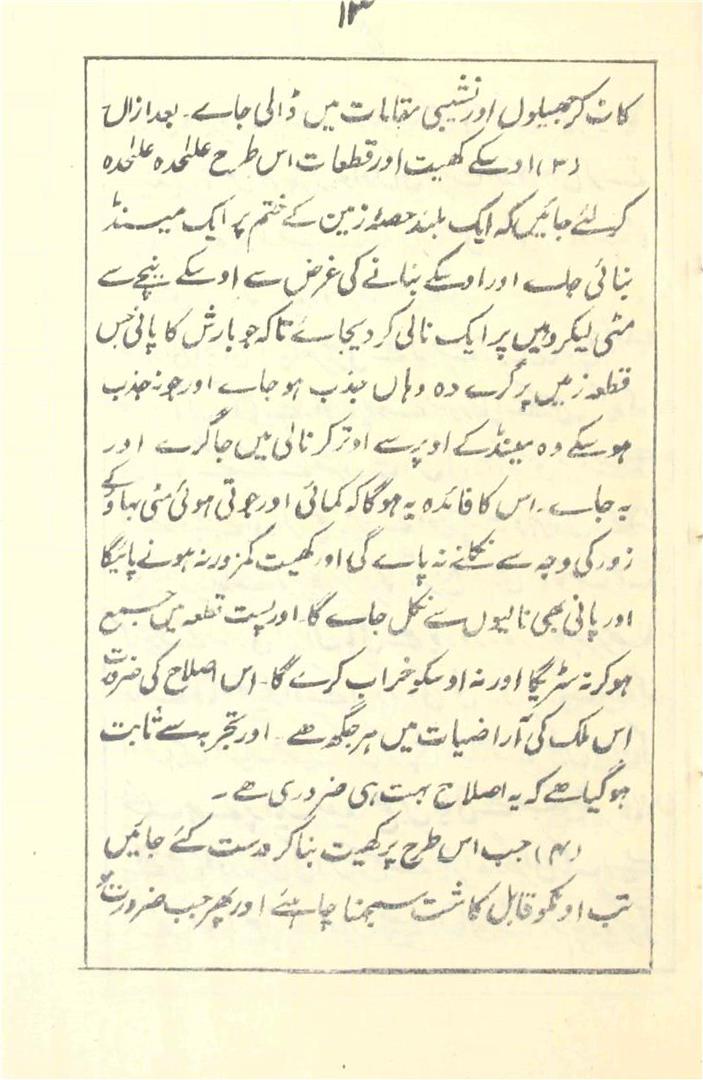 ۱۳
کاٹ کر جھیلوں اور نشیبی مقامات میں ڈالی جاے ۔ بعد ازاں
(۳) اوسکے کھیت اور قطعات اس طرح علٰحدہ علٰحدہ
کرلئے جائیں کہ ایک بلند حصۂ زمین کے ختم پر ایک مینڈ
بنائی جاے اور اوسکے بنانے کی غرض سے اوسکے نیچے سے
مٹی لیکر وہیں پر ایک نالی کردیجاے تاکہ جو بارش کا پانی جس
قطعہ زمیں پر گرے وہ وہاں جذب ہو جاے اور جو نہ جذب
ہو سکے وہ مینڈ کے اوپر سے اوتر کر نالی میں جا گرے اور
بہ جاے ۔ اس کا فائدہ یہ ہوگا کہ کمائی اور جوتی ہوئی مٹی بہاؤ کے
زور کی وجہ سے نکلنے نہ پاے گی اور کھیت کمزور نہ ہونے پائیگا
اور پانی بھی نالیوں سے نکل جاے گا۔ اور پست قطعہ میں جمع
ہو کر نہ سڑیگا اور نہ اوسکو خراب کرے گا۔ اس اصلاح کی ضرورت
اس ملک کی آراضیات میں ہر جگھ ھے ۔ اور تجربہ سے ثابت
ہو گیا ھے کہ یہ اصلاح بہت ہی ضروری ھے ۔
(۴) جب اس طرح پر کھیت بنا کر درست کئے جائیں
تب اونکو قابل کاشت سمجھنا چاہئے اور پھر جب ضرورت ہو